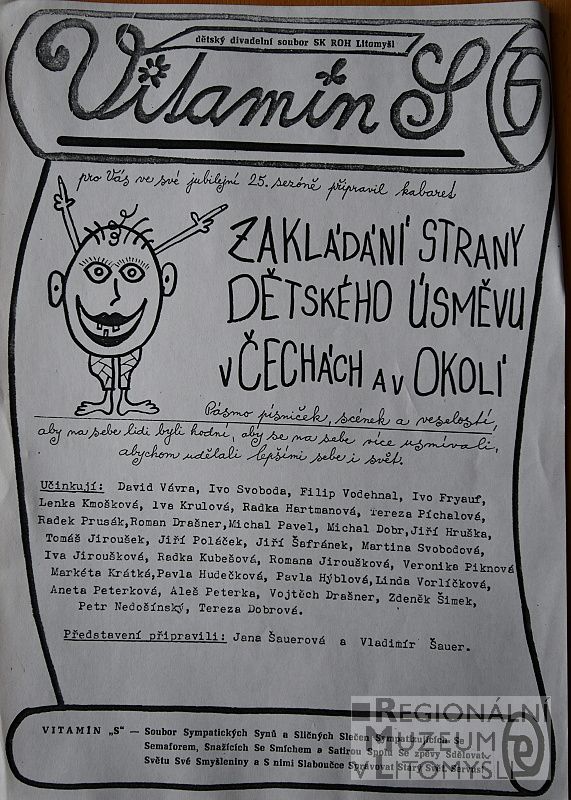 dětský divadelní soubor SK ROH Litomyšl
Vitamín S
pro Vás ve své jubilejní 25. sezóně připravil kabaret
ZAKLÁDÁNÍ STRANY
DĚTSKÉHO ÚSMĚVU
V ČECHÁCH A V OKOLÍ
Pásmo písniček, scének a veselostí,
aby na sebe lidi byli hodní, aby se na sebe více usmívali,
abychom udělali lepšími sebe i svět.
Učinkují: David Vávra, Ivo Svoboda, Filip Vodehnal, Ivo Fryauf,
Lenka Kmošková, Iva Krulová, Radka Hartmanová, Tereza Píchalová,
Radek Prusák,Roman Drašner,Michal Pavel, Michal Dobr,Jiří Hruška,
Tomáš Jiroušek, Jiří Poláček, Jiří Šafránek, Martina Svobodová,
Iva Jiroušková, Radka Kubešová, Romana Jiroušková, Veronika Piknová
Markéta Krátká,Pavla Hudečková, Pavla Hýblová,Linda Vorlíčková,
Aneta Peterková, Aleš Peterka, Vojtěch Drašner, Zdeněk Šimek,
Petr Nedošínský, Tereza Dobrová.
Představení připravili: Jana Šauerová a Vladimír Šauer.
VITAMÍN „S" — Soubor Sympatických Synů a Sličných Slečen Sympatizujících Se
Semaforem, Snažících Se Smíchem a Satirou Spolu Se zpěvy Sdělovat
Světu Své Smyšleniny a S nimi Slaboučce Spravovat Starý Svět. Servus!
REGIONÁLNÍ
MUZEUM
V LITOMYŠLI